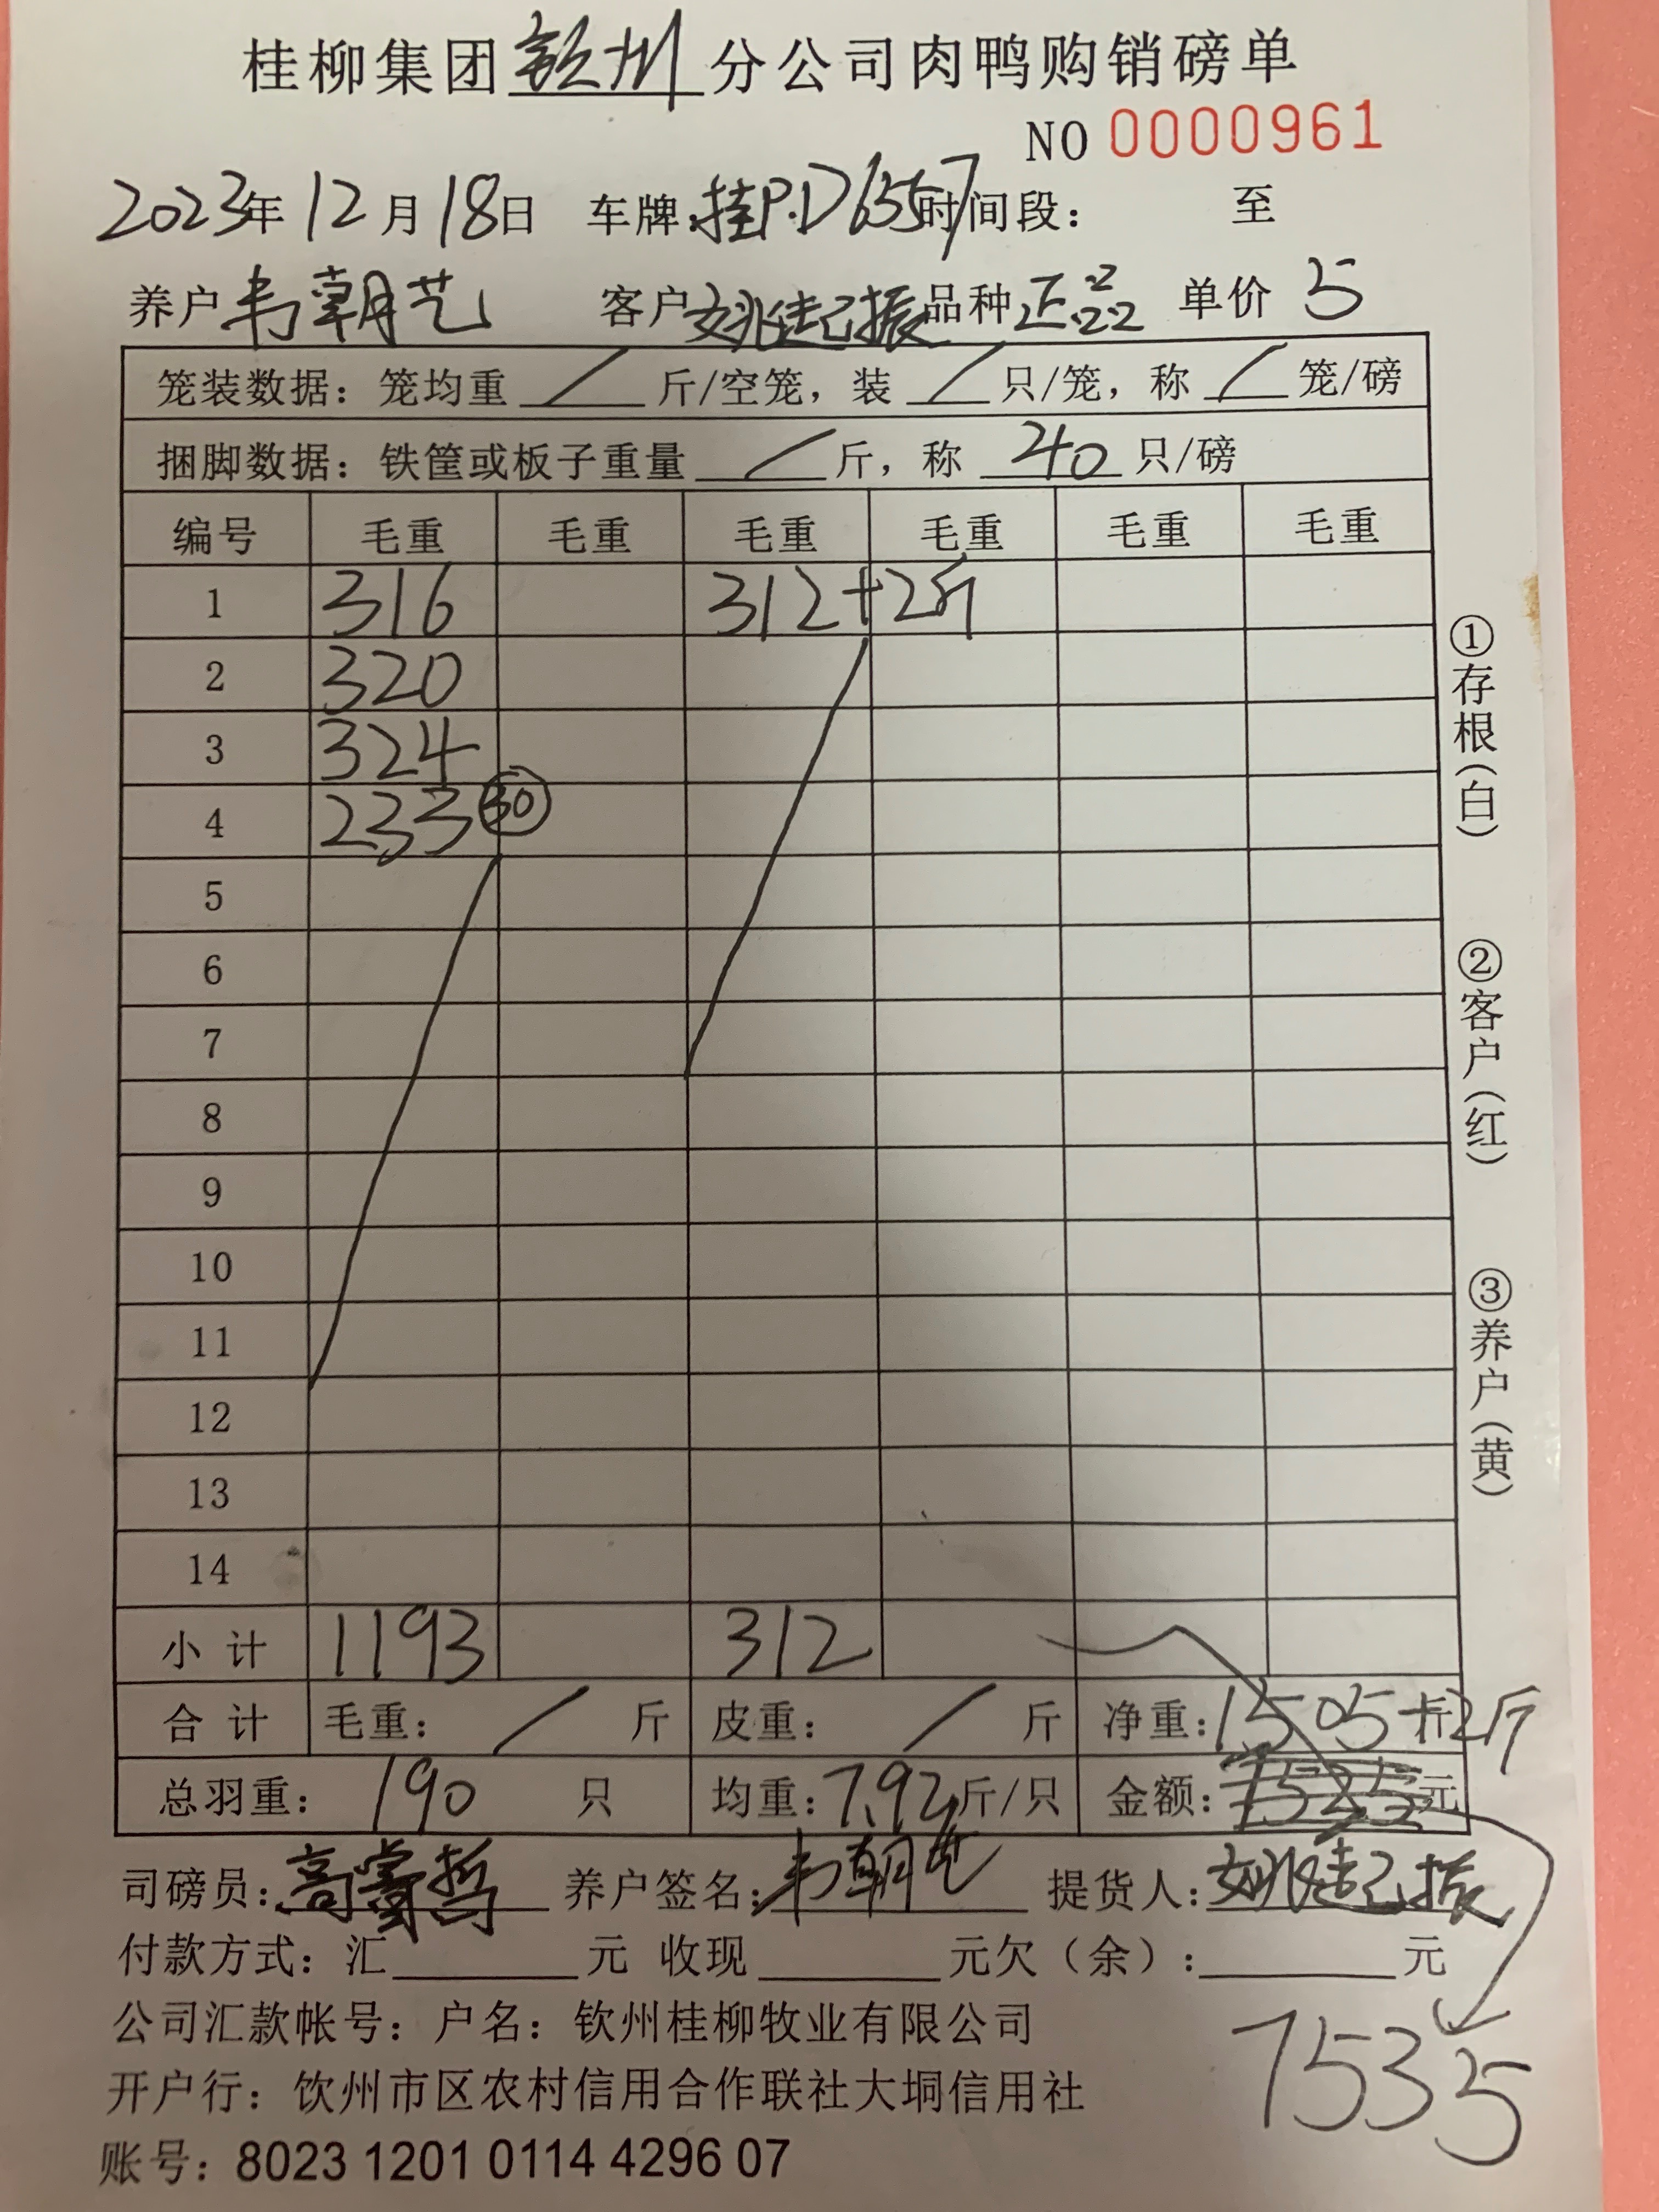 桂柳集团钦州分公司肉鸭购销磅单
NO 0000961
2023年12月18日 车牌:桂P.D6357时间段: 至
养户韦朝艺 客户姚起振 品种正品 单价 5
笼装数据:笼均重 / 斤/空笼,装 / 只/笼,称 / 笼/磅
捆脚数据:铁筐或板子重量 / 斤,称 40 只/磅
编号 毛重 毛重 毛重 毛重 毛重 毛重
1 316 312+2斤
2 320
3 324
4 233 30
5
6
7
8
9
10
11
12
13
14
小计 1193 312
合计 毛重: / 斤 皮重: / 斤 净重:1505斤+2斤
总羽重: 190 只 均重:7.92斤/只 金额:7525元
司磅员: 养户签名:韦朝艺 提货人:姚起振
付款方式:汇 元 收现 元欠(余): 元
公司汇款帐号:户名:钦州桂柳牧业有限公司
7535
开户行:饮州市区农村信用合作联社大垌信用社
账号:8023 1201 0114 4296 07
①存根(白)
②客户(红)
③养户(黄)